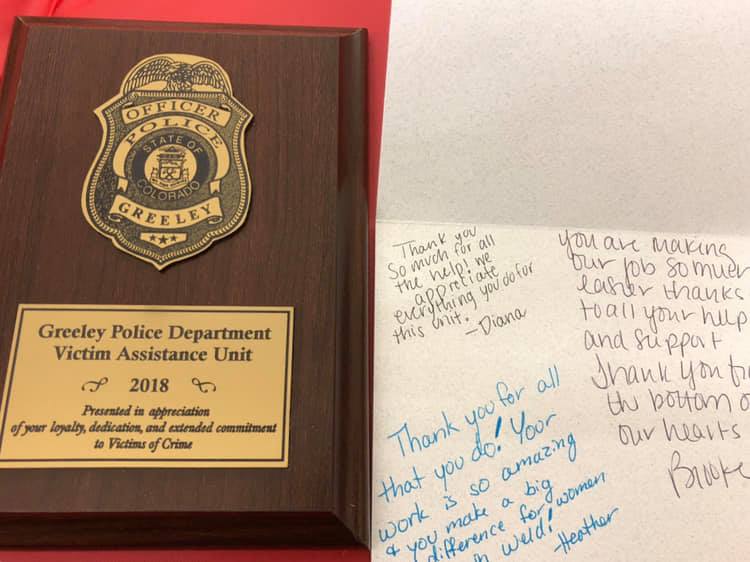 OFFICER
POLICE
STATE OF
COLORADO
GREELEY
Greeley Police Department
Victim Assistance Unit
2018
Presented in appreciation
of your loyalty, dedication, and extended commitment
to Victims of Crime
Thank you
so much for all
the help! we
appretiate
everything you do for
this unit.
-Diana
you are making
our job so much
easier thanks
to all your help
and support
Thank you
the bottom
our hearts
Brooke
Thank you for all
that you do! Your
work is so amazing
& you make a big
difference for women
in weld!
-Heather